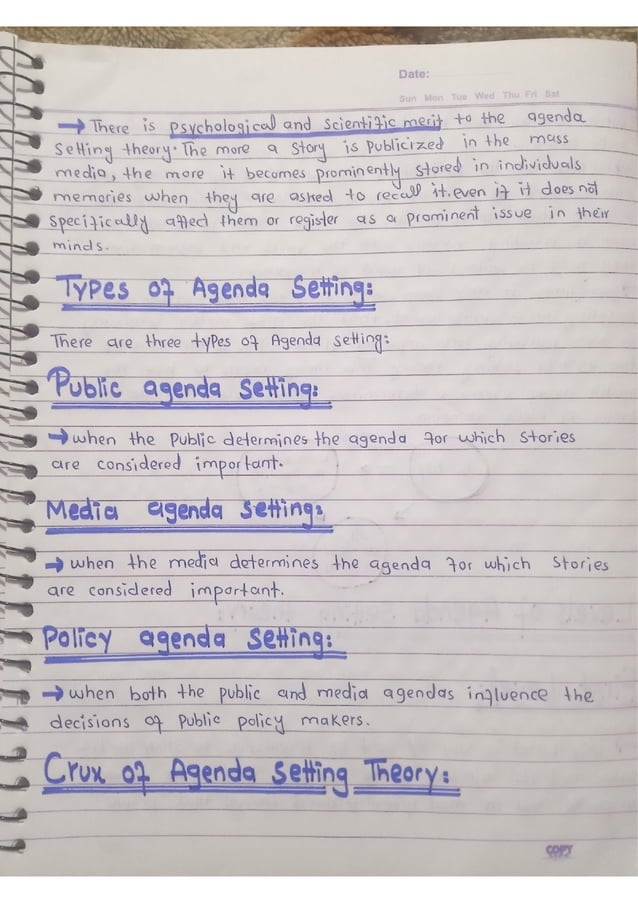 Date:
Sun Mon Tue Wed Thu Fri Sat
→ There is psychological and scientific merit to the agenda
setting theory. The more a story is publicized in the mass
media, the more it becomes prominently stored in individuals
memories when they are asked to recall it. even if it does not
specifically affect them or register as a prominent issue in their
minds.
Types of Agenda Setting:
There are three types of Agenda setting:
Public agenda setting:
→ when the Public determines the agenda for which stories
are considered important.
Media agenda setting:
→ when the media determines the agenda for which stories
are considered important.
Policy agenda setting:
→ when both the public and media agendas influence the
decisions of public policy makers.
Crux of Agenda Setting Theory:
COPY